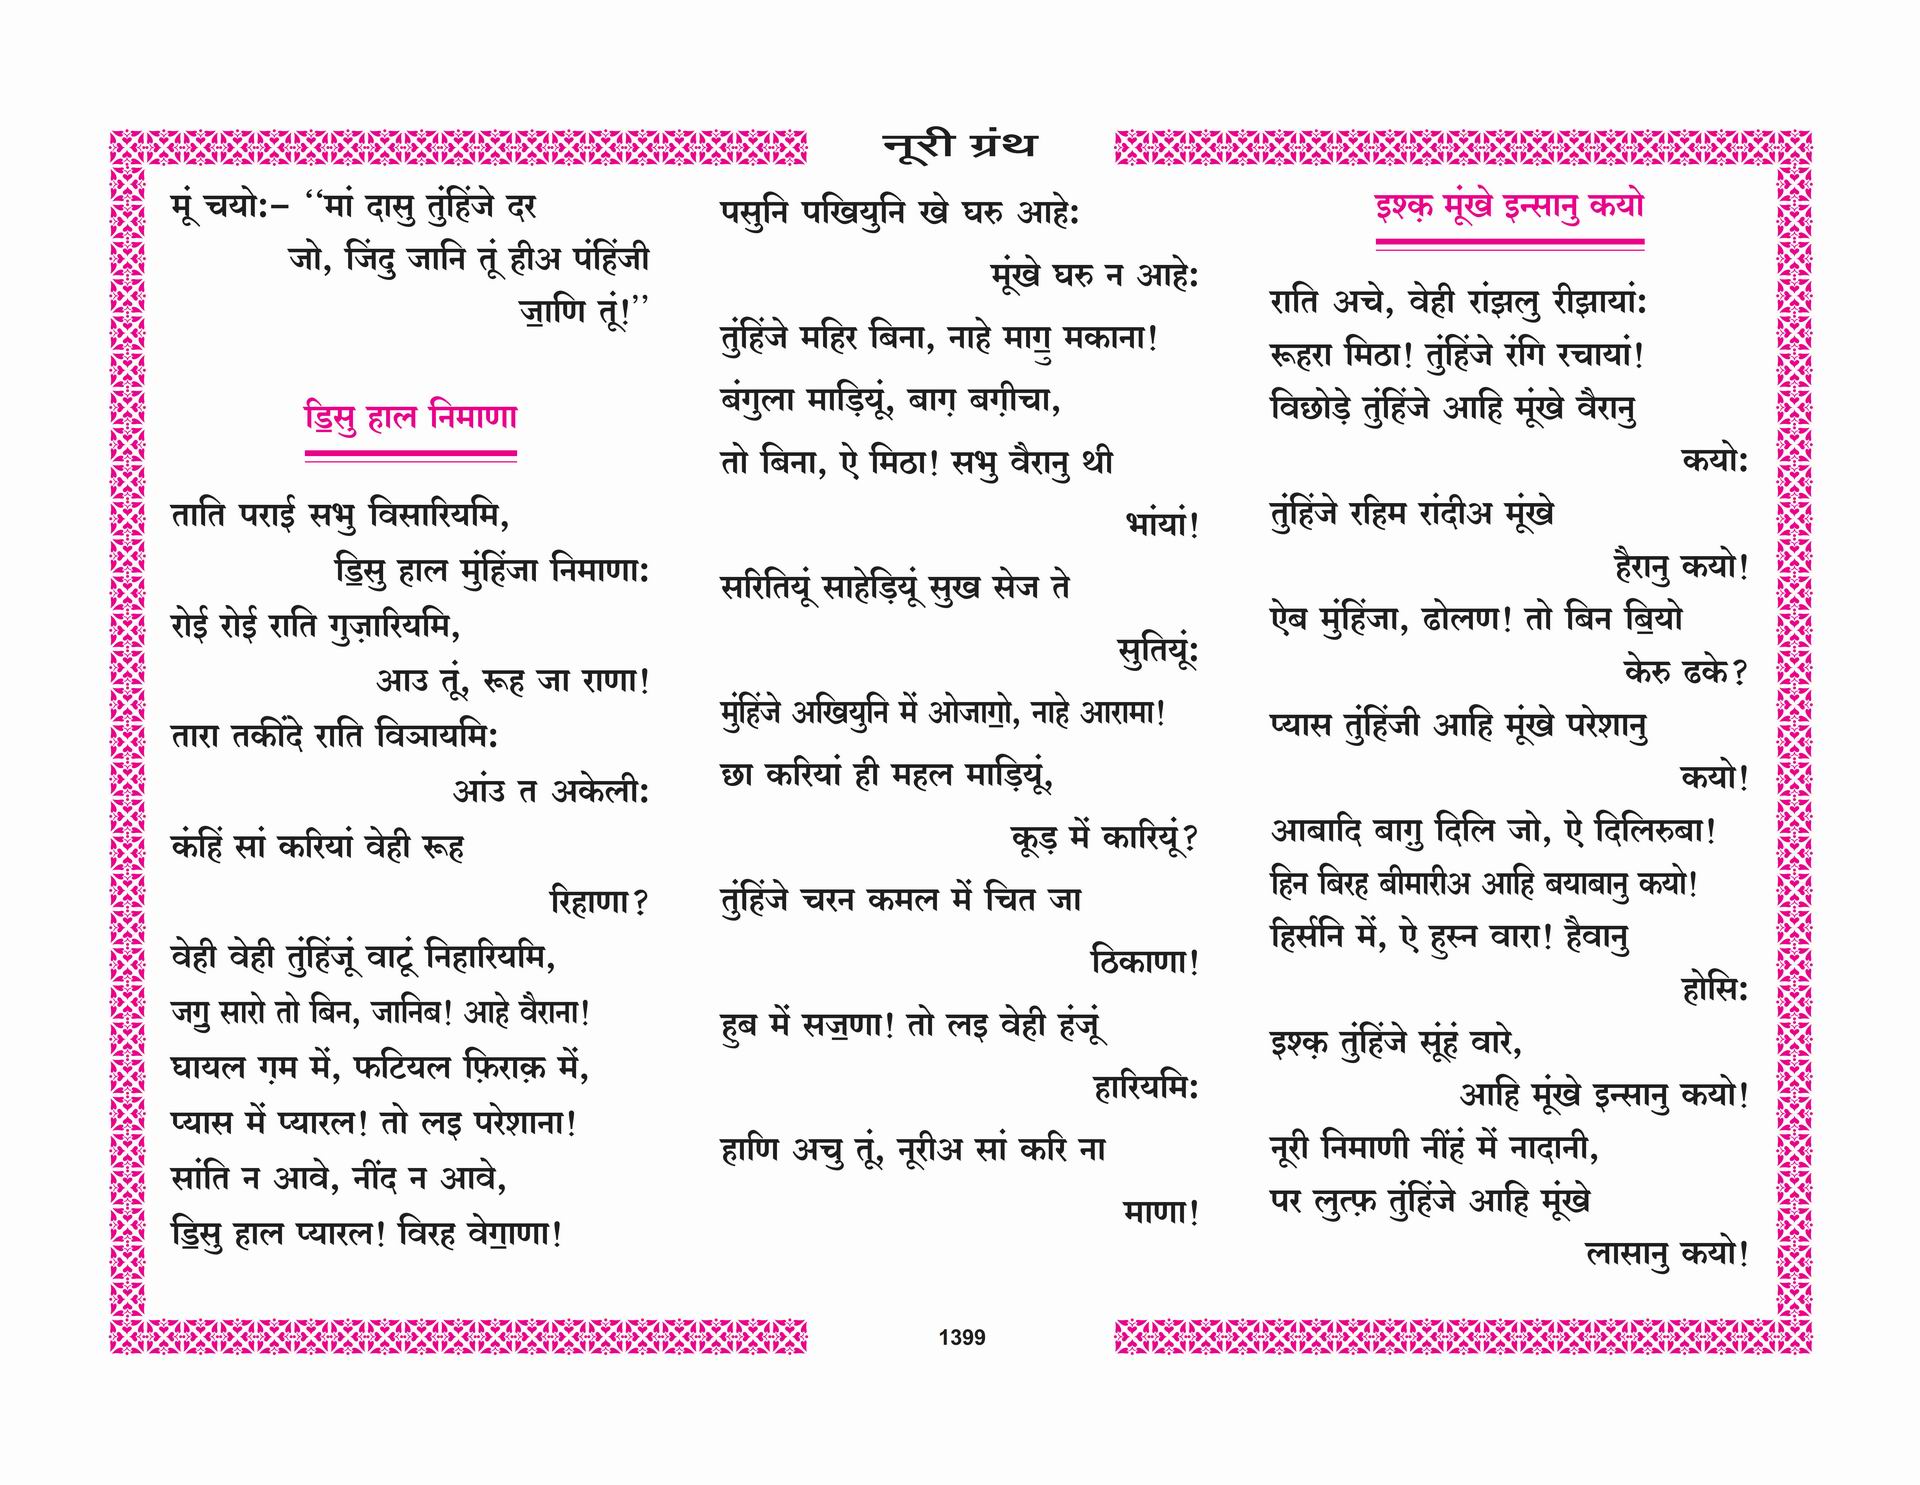 नूरी ग्रंथ
मूं चयो:– “मां दासु तुंहिंजे दर
जो, जिंदु जानि तूं हीअ पंहिंजी
ॼाणि तूं!”
ॾिसु हाल निमाणा
ताति पराई सभु विसारियमि,
ॾिसु हाल मुंहिंजा निमाणा:
रोई रोई राति गुज़ारियमि,
आउ तूं, रूह जा राणा!
तारा तकींदे राति विञायमि:
आंउ त अकेली:
कंहिं सां करियां वेही रूह
रिहाणा?
वेही वेही तुंहिंजूं वाटूं निहारियमि,
जगु सारो तो बिन, जानिब! आहे वैराना!
घायल ग़म में, फटियल फ़िराक़ में,
प्यास में प्यारल! तो लइ परेशाना!
सांति न आवे, नींद न आवे,
ॾिसु हाल प्यारल! विरह वेॻाणा!
पसुनि पखियुनि खे घरु आहे:
मूंखे घरु न आहे:
तुंहिंजे महिर बिना, नाहे माॻु मकाना!
बंगुला माड़ियूं, बाग़ बग़ीचा,
तो बिना, ऐ मिठा! सभु वैरानु थी
भांयां!
सरितियूं साहेड़ियूं सुख सेज ते
सुतियूं:
मुंहिंजे अखियुनि में ओजाॻो, नाहे आरामा!
छा करियां ही महल माड़ियूं,
कूड़ में कारियूं?
तुंहिंजे चरन कमल में चित जा
ठिकाणा!
हुब में सॼणा! तो लइ वेही हंजूं
हारियमि:
हाणि अचु तूं, नूरीअ सां करि ना
माणा!
इश्क़ मूंखे इन्सानु कयो
राति अचे, वेही रांझलु रीझायां:
रूहरा मिठा! तुंहिंजे रंगि रचायां!
विछोड़े तुंहिंजे आहि मूंखे वैरानु
कयो:
तुंहिंजे रहिम रांदीअ मूंखे
हैरानु कयो!
ऐब मुंहिंजा, ढोलण! तो बिन ॿियो
केरु ढके?
प्यास तुंहिंजी आहि मूंखे परेशानु
कयो!
आबादि बाग़ु दिलि जो, ऐ दिलिरुबा!
हिन बिरह बीमारीअ आहि बयाबानु कयो!
हिर्सनि में, ऐ हुस्न वारा! हैवानु
होसि:
इश्क़ तुंहिंजे सूंहं वारे,
आहि मूंखे इन्सानु कयो!
नूरी निमाणी नींहं में नादानी,
पर लुत्फ़ तुंहिंजे आहि मूंखे
लासानु कयो!
1399